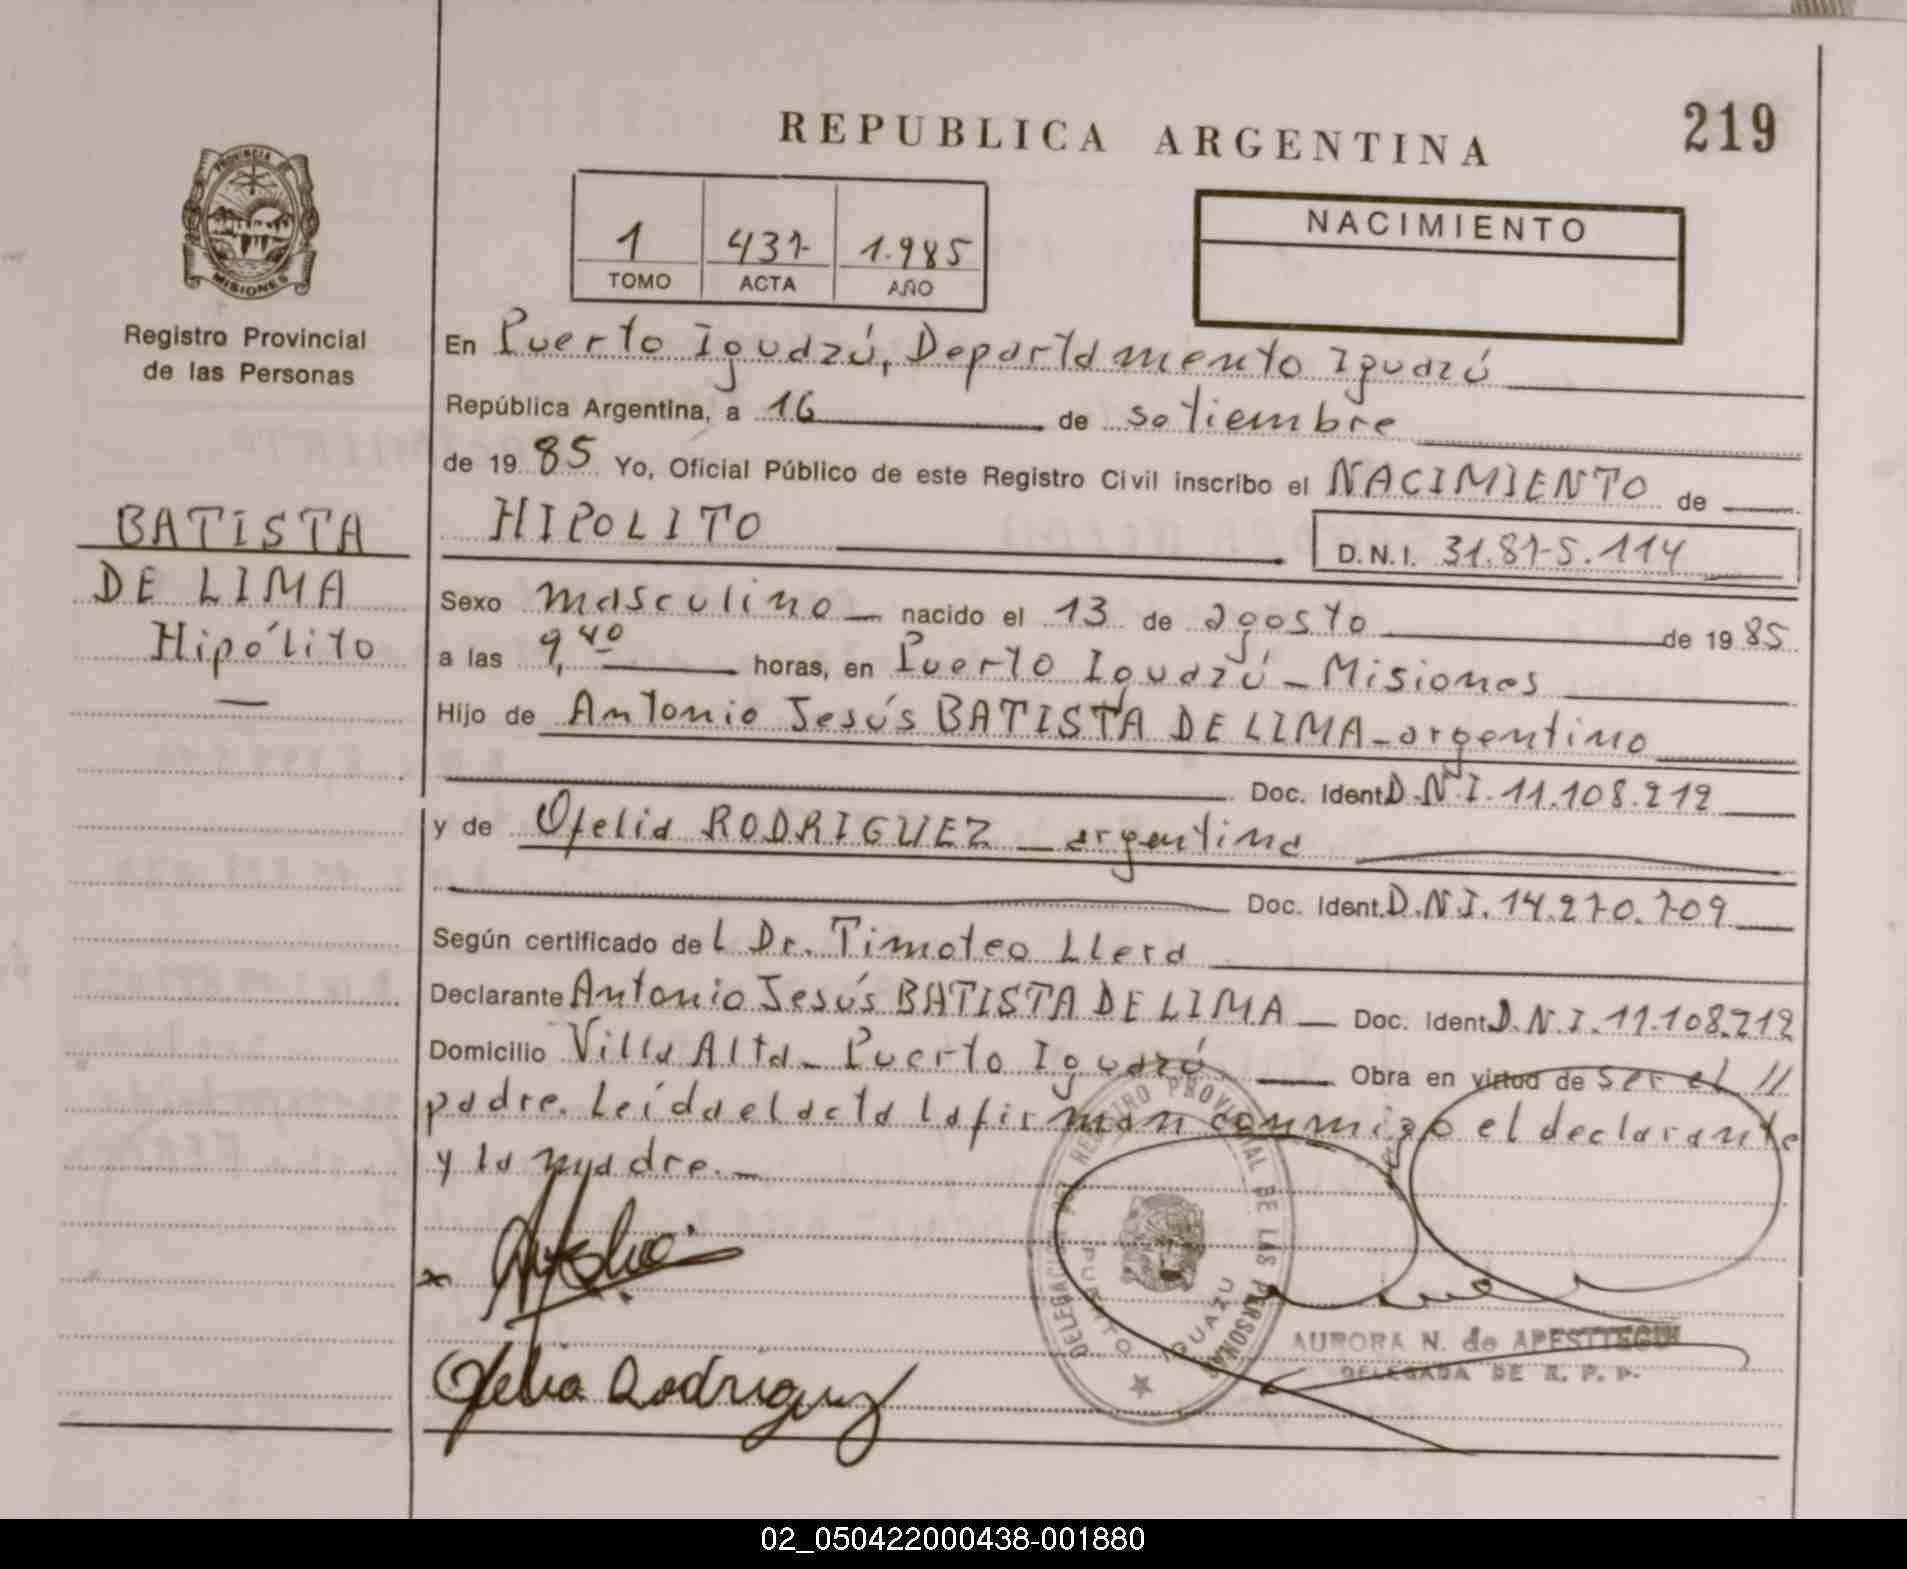 REPUBLICA ARGENTINA
219
PROVINCIA
MISIONES
Registro Provincial
de las Personas
1 437 1.985
TOMO ACTA AÑO
NACIMIENTO
BATISTA
DE LIMA
Hipólito
En Puerto Iguazú, Departamento Iguazú
República Argentina, a 16 de setiembre
de 1985 Yo, Oficial Público de este Registro Civil inscribo el NACIMIENTO de
HIPOLITO D.N.I. 31.875.114
Sexo masculino nacido el 13 de agosto de 1985
a las 9,40 horas, en Puerto Iguazú - Misiones
Hijo de Antonio Jesús BATISTA DE LIMA - argentino
Doc. Ident. D.N.I. 11.108.212
y de Ofelia RODRIGUEZ - argentina
Doc. Ident. D.N.I. 14.270.709
Según certificado del Dr. Timoteo Llera
Declarante Antonio Jesús BATISTA DE LIMA - Doc. Ident. D.N.I. 11.108.212
Domicilio Villa Alta - Puerto Iguazú Obra en virtud de ser el //
padre. Leída el acta la firman conmigo el declarante
y la madre. -
x Antonio
Ofelia Rodriguez
DELEGACION DEL REGISTRO PROVINCIAL DE LAS PERSONAS
PUERTO IGUAZU
AURORA N. de APESTTEGUI
DELEGADA DE R. P. P.
02_050422000438-001880